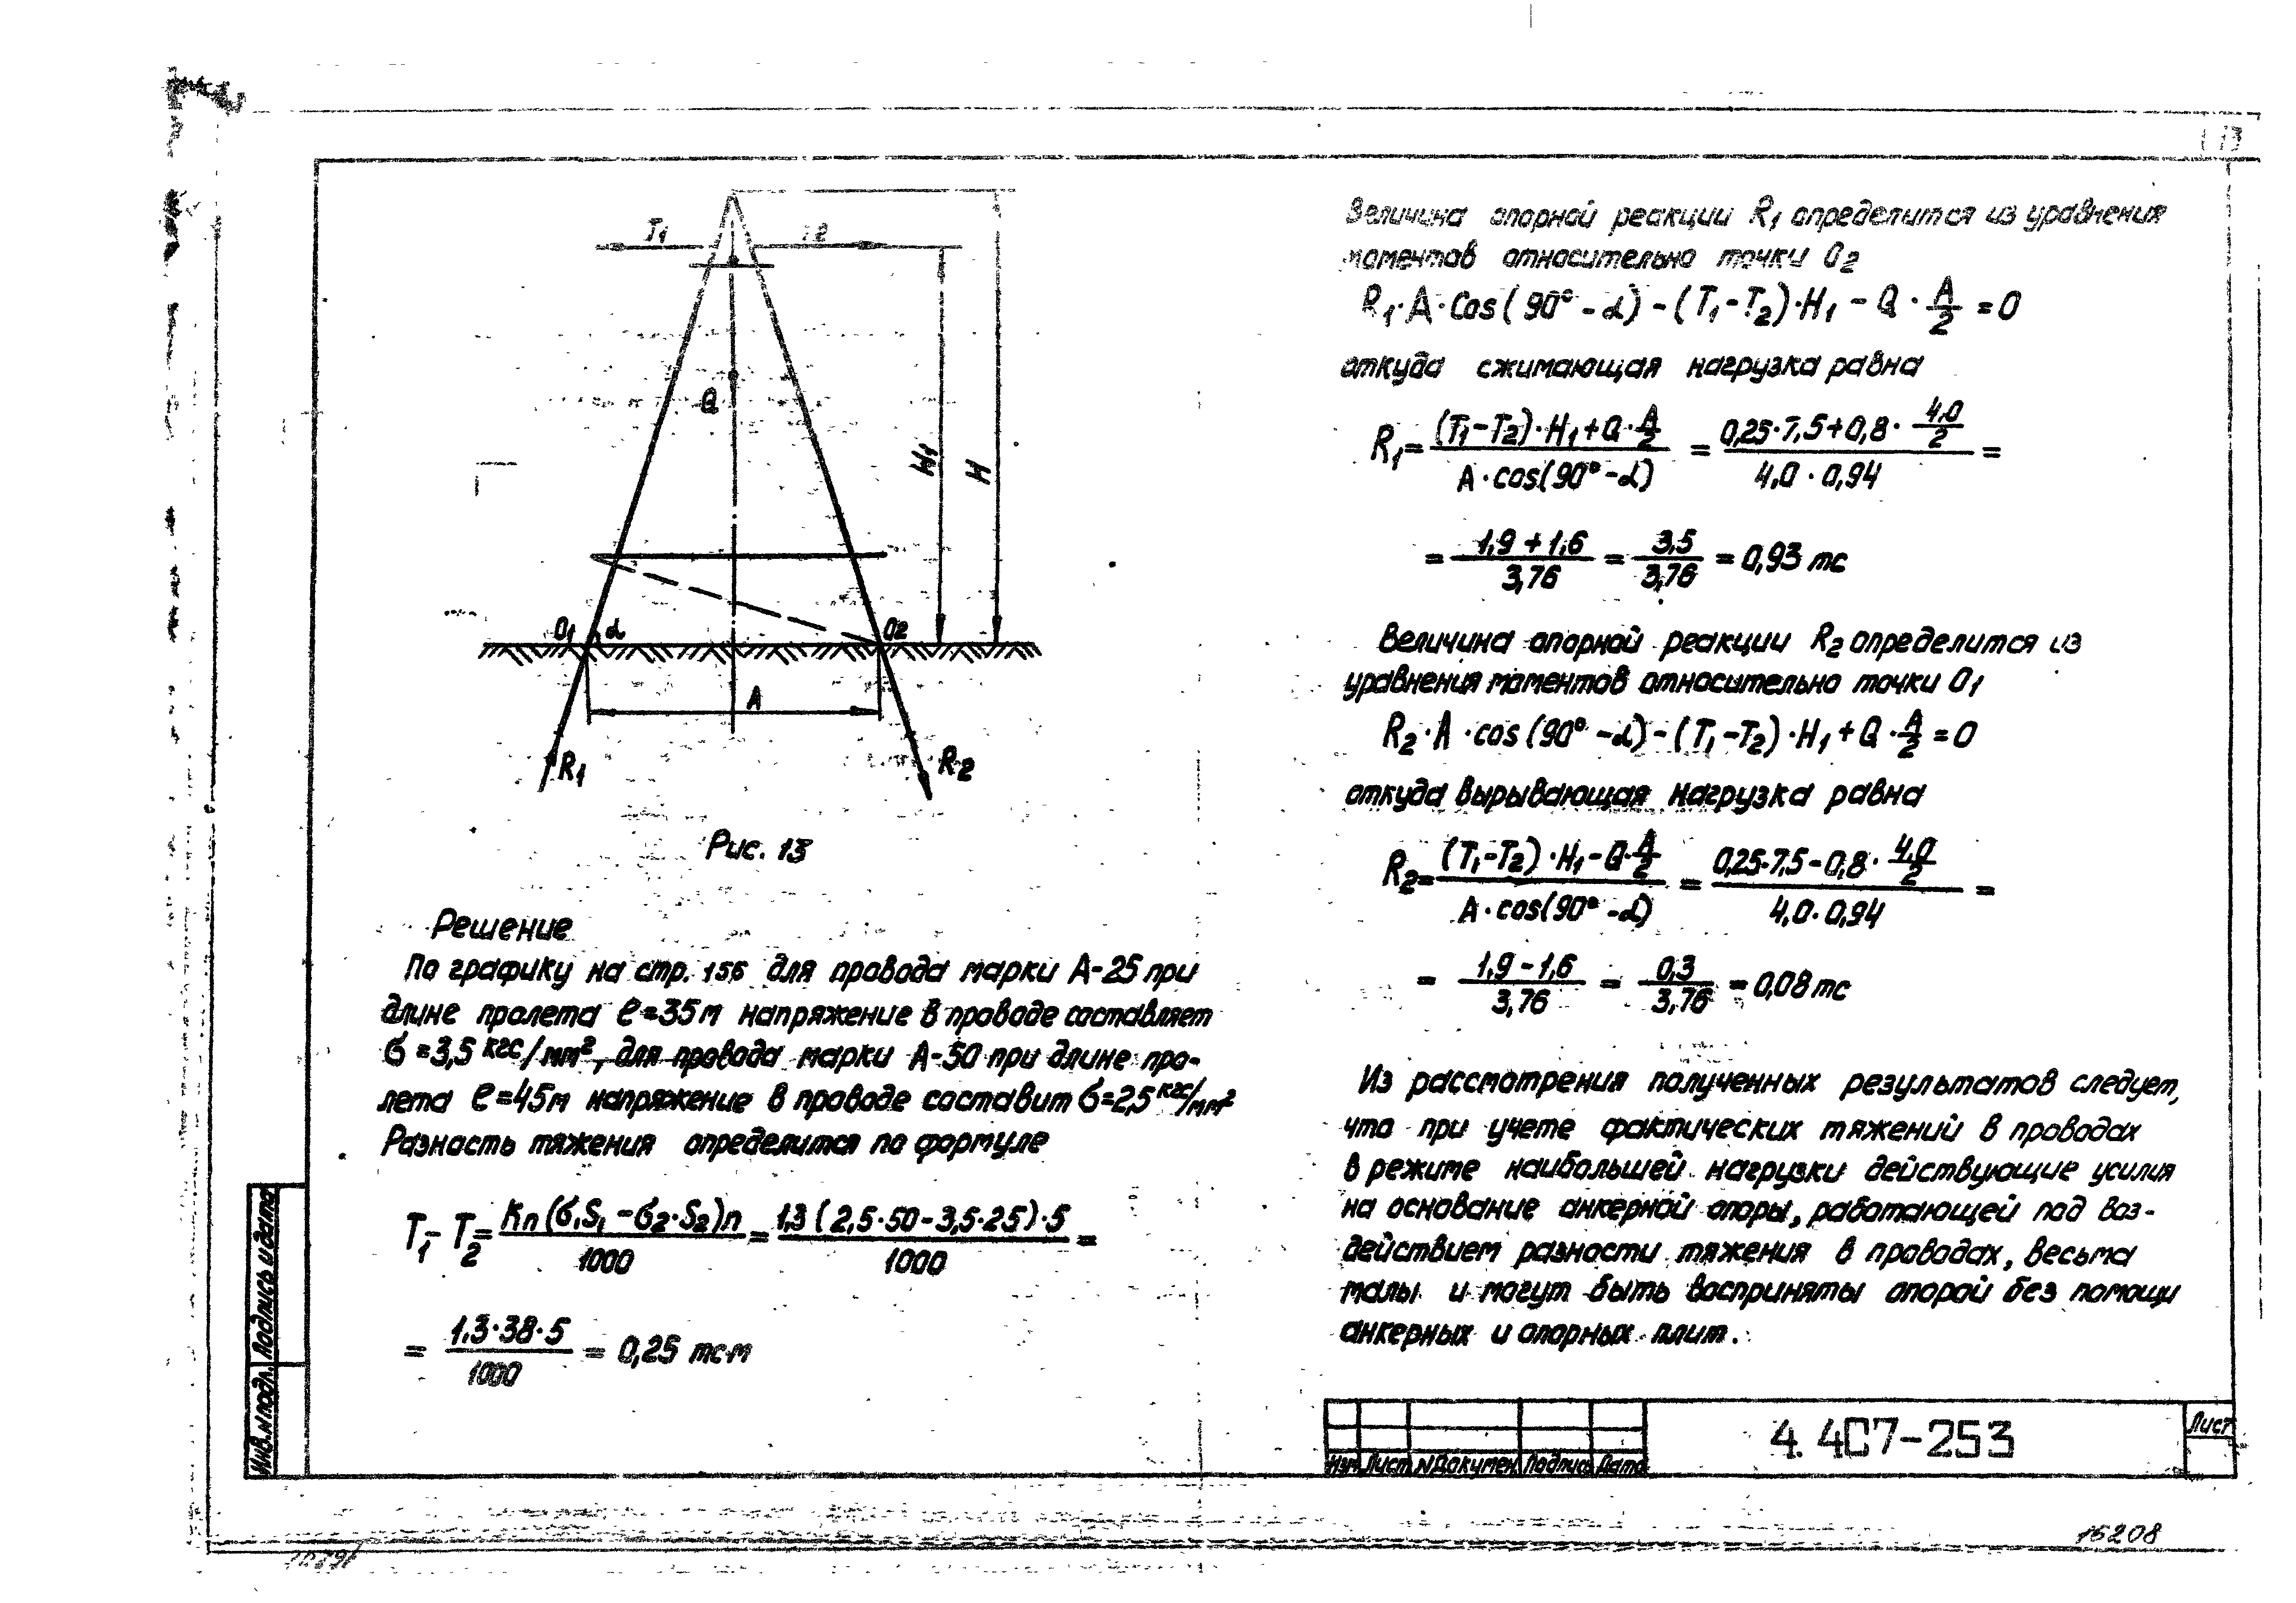 13
T1
T2
Q
H1
H
O1
α
O2
A
R1
R2
Рис. 13
Решение
По графику на стр. 156 для провода марки А-25 при
длине пролета ℓ=35м напряжение в проводе составляет
σ=3,5 кгс/мм², для провода марки А-50 при длине про-
лета ℓ=45м напряжение в проводе составит σ=2,5 кгс/мм²
Разность тяжения определится по формуле
T₁-T₂ = Kп(σ₁S₁ - σ₂·S₂)n / 1000 = 1,3(2,5·50-3,5·25)·5 / 1000 =
= 1,3·38·5 / 1000 = 0,25 тс·м
Величина опорной реакции R₁ определится из уравнения
моментов относительно точки O₂
R₁·A·Cos(90°-α)-(T₁-T₂)·H₁-Q·A/2=0
откуда сжимающая нагрузка равна
R₁= (T₁-T₂)·H₁+Q·A/2 / A·cos(90°-α) = 0,25·7,5+0,8·4,0/2 / 4,0·0,94 =
= 1,9+1,6 / 3,76 = 3,5 / 3,76 = 0,93 тс
Величина опорной реакции R₂ определится из
уравнения моментов относительно точки O₁
R₂·A·cos(90°-α)-(T₁-T₂)·H₁+Q·A/2=0
откуда вырывающая нагрузка равна
R₂= (T₁-T₂)·H₁-Q·A/2 / A·cos(90°-α) = 0,25·7,5-0,8·4,0/2 / 4,0·0,94 =
= 1,9-1,6 / 3,76 = 0,3 / 3,76 = 0,08 тс
Из рассмотрения полученных результатов следует,
что при учете фактических тяжений в проводах
в режиме наибольшей нагрузки действующие усилия
на основание анкерной опоры, работающей под воз-
действием разности тяжения в проводах, весьма
малы и могут быть восприняты опорой без помощи
анкерных и опорных плит.
Инв.№подл. Подпись и дата
Изм Лист №Докумен Подпись Дата
4.407-253
Лист
15208